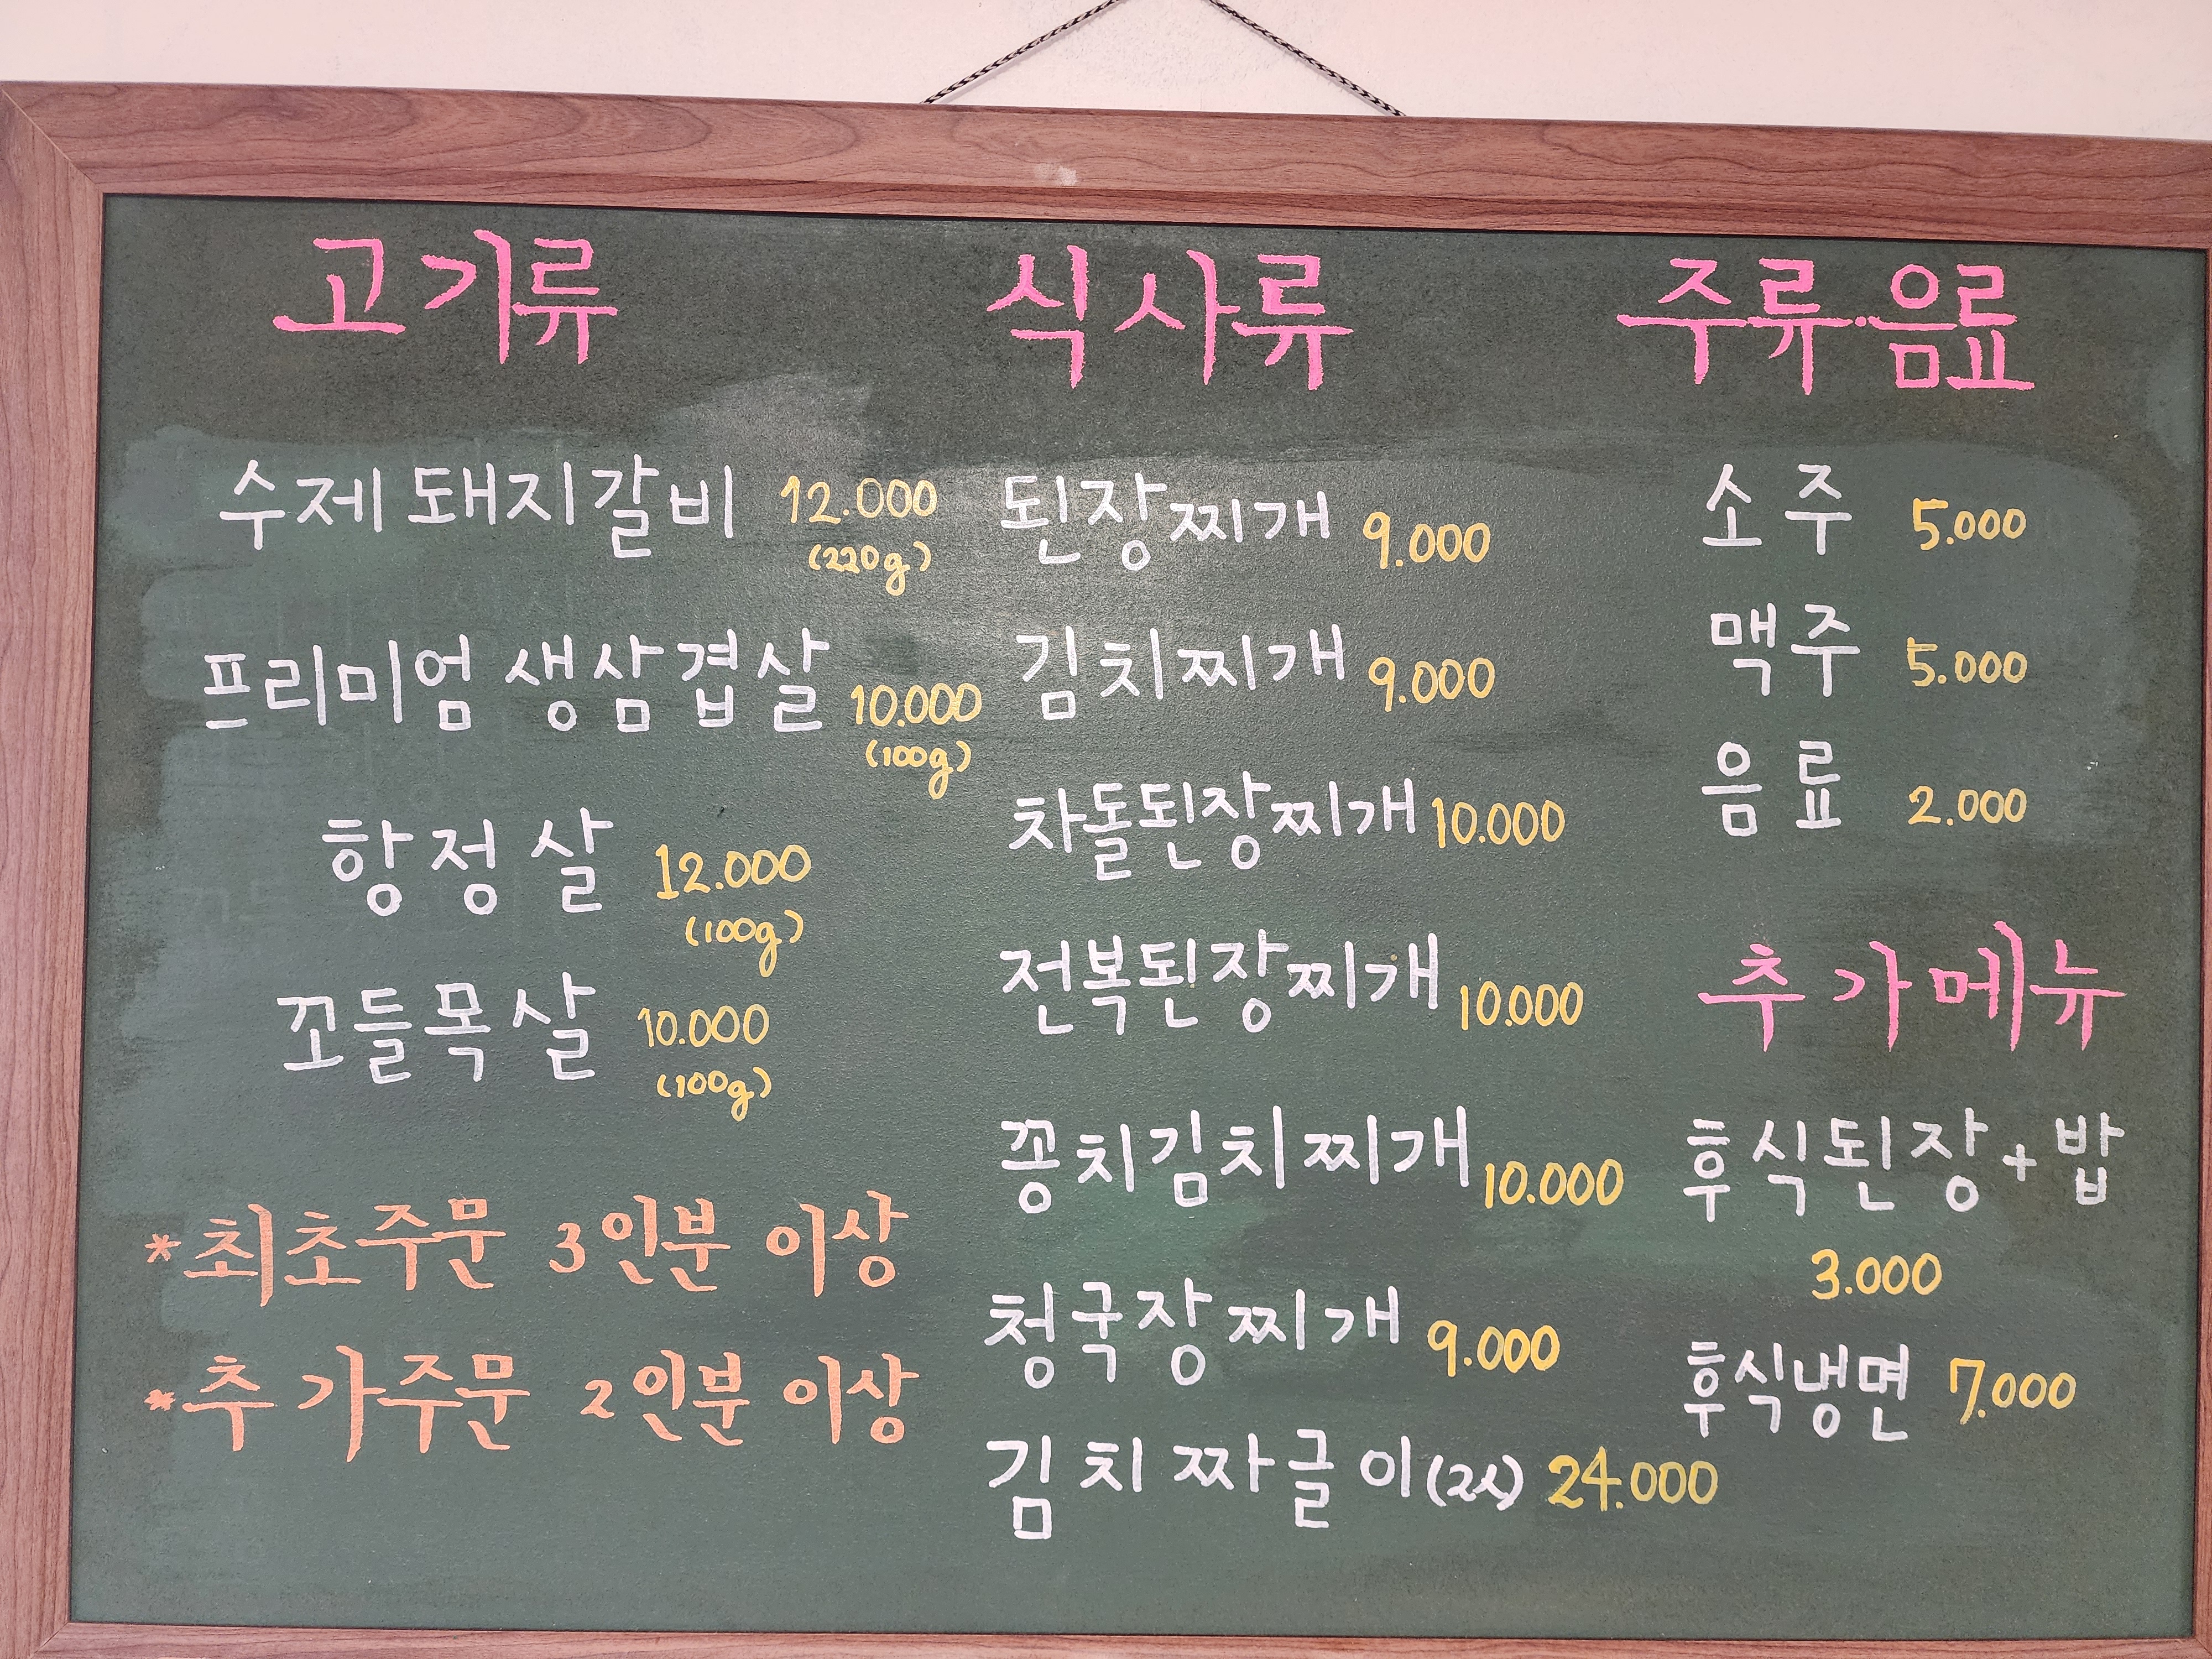 고기류
수제 돼지갈비 12.000
(220g)
프리미엄 생삼겹살 10.000
(100g)
항정살 12.000
(100g)
꼬들목살 10.000
(100g)
*최초주문 3인분 이상
*추가주문 2인분 이상
식사류
된장찌개 9.000
김치찌개 9.000
차돌된장찌개 10.000
전복된장찌개 10.000
꽁치김치찌개 10.000
청국장찌개 9.000
김치짜글이(2人) 24.000
주류·음료
소주 5.000
맥주 5.000
음료 2.000
추가메뉴
후식된장+밥
3.000
후식냉면 7.000